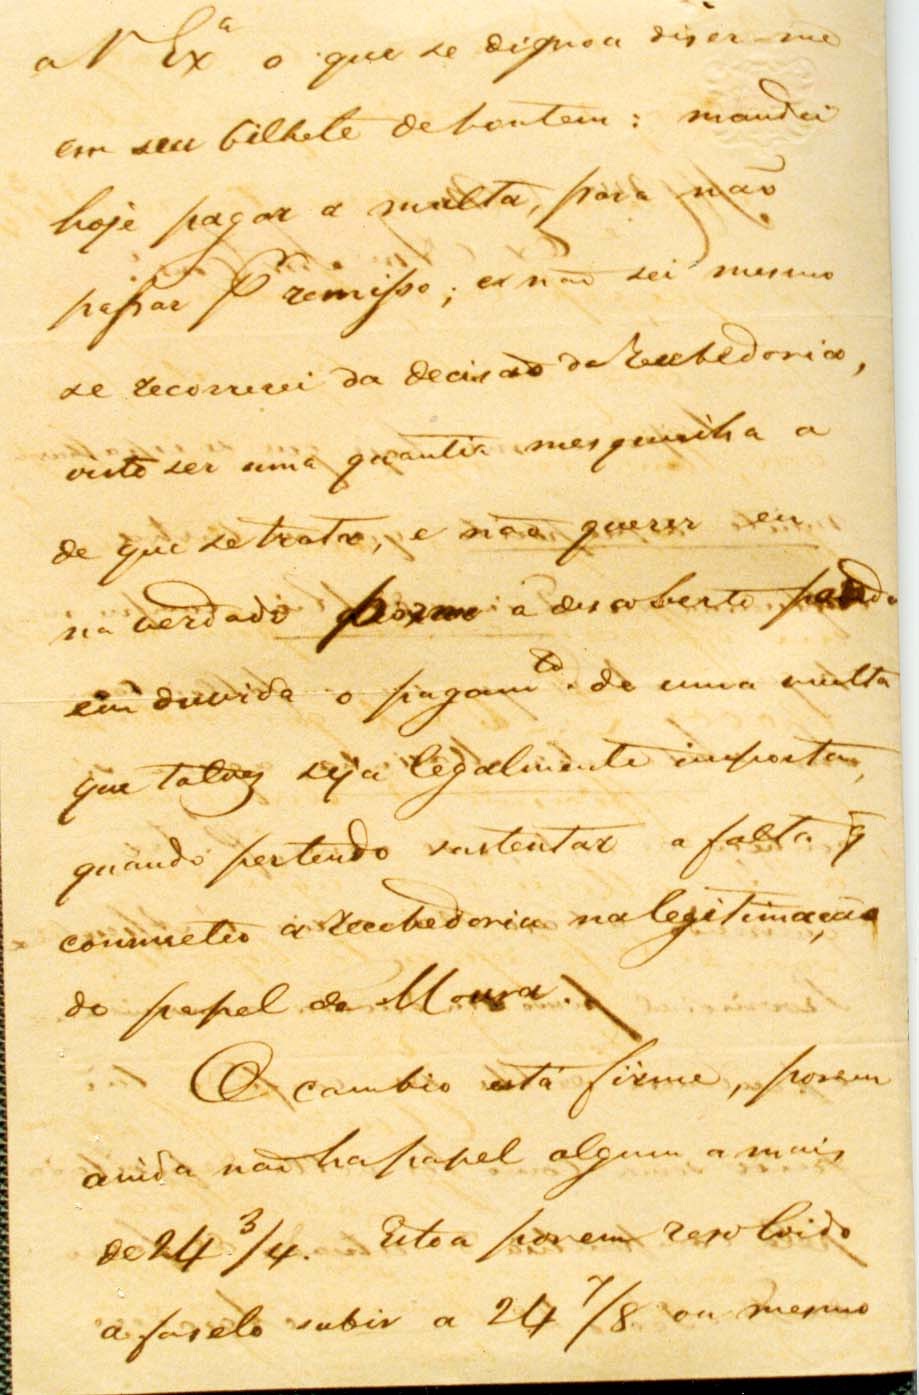 a V Exª o que se dignou diser-me
em seu bilhete de hontem: mandei
hoje pagar a multa, para não
passar pr remisso; e não sei mesmo
se recorrerei da decisão da Recebedoria,
visto ser uma quantia mesquinha a
de que se trata, e não querer eu
na verdade pôr-me a descoberto pondo
em duvida o pagamto. de uma multa
que talvez seja legalmente imposta,
quando pertendo sustentar a falta q̃
commetteo a Recebedoria na legitimação
do papel de Moura.
O cambio está firme, porem
ainda não ha papel algum a mais
de 24 3/4. Estou porem resolvido
a faselo subir a 24 7/8 ou mesmo